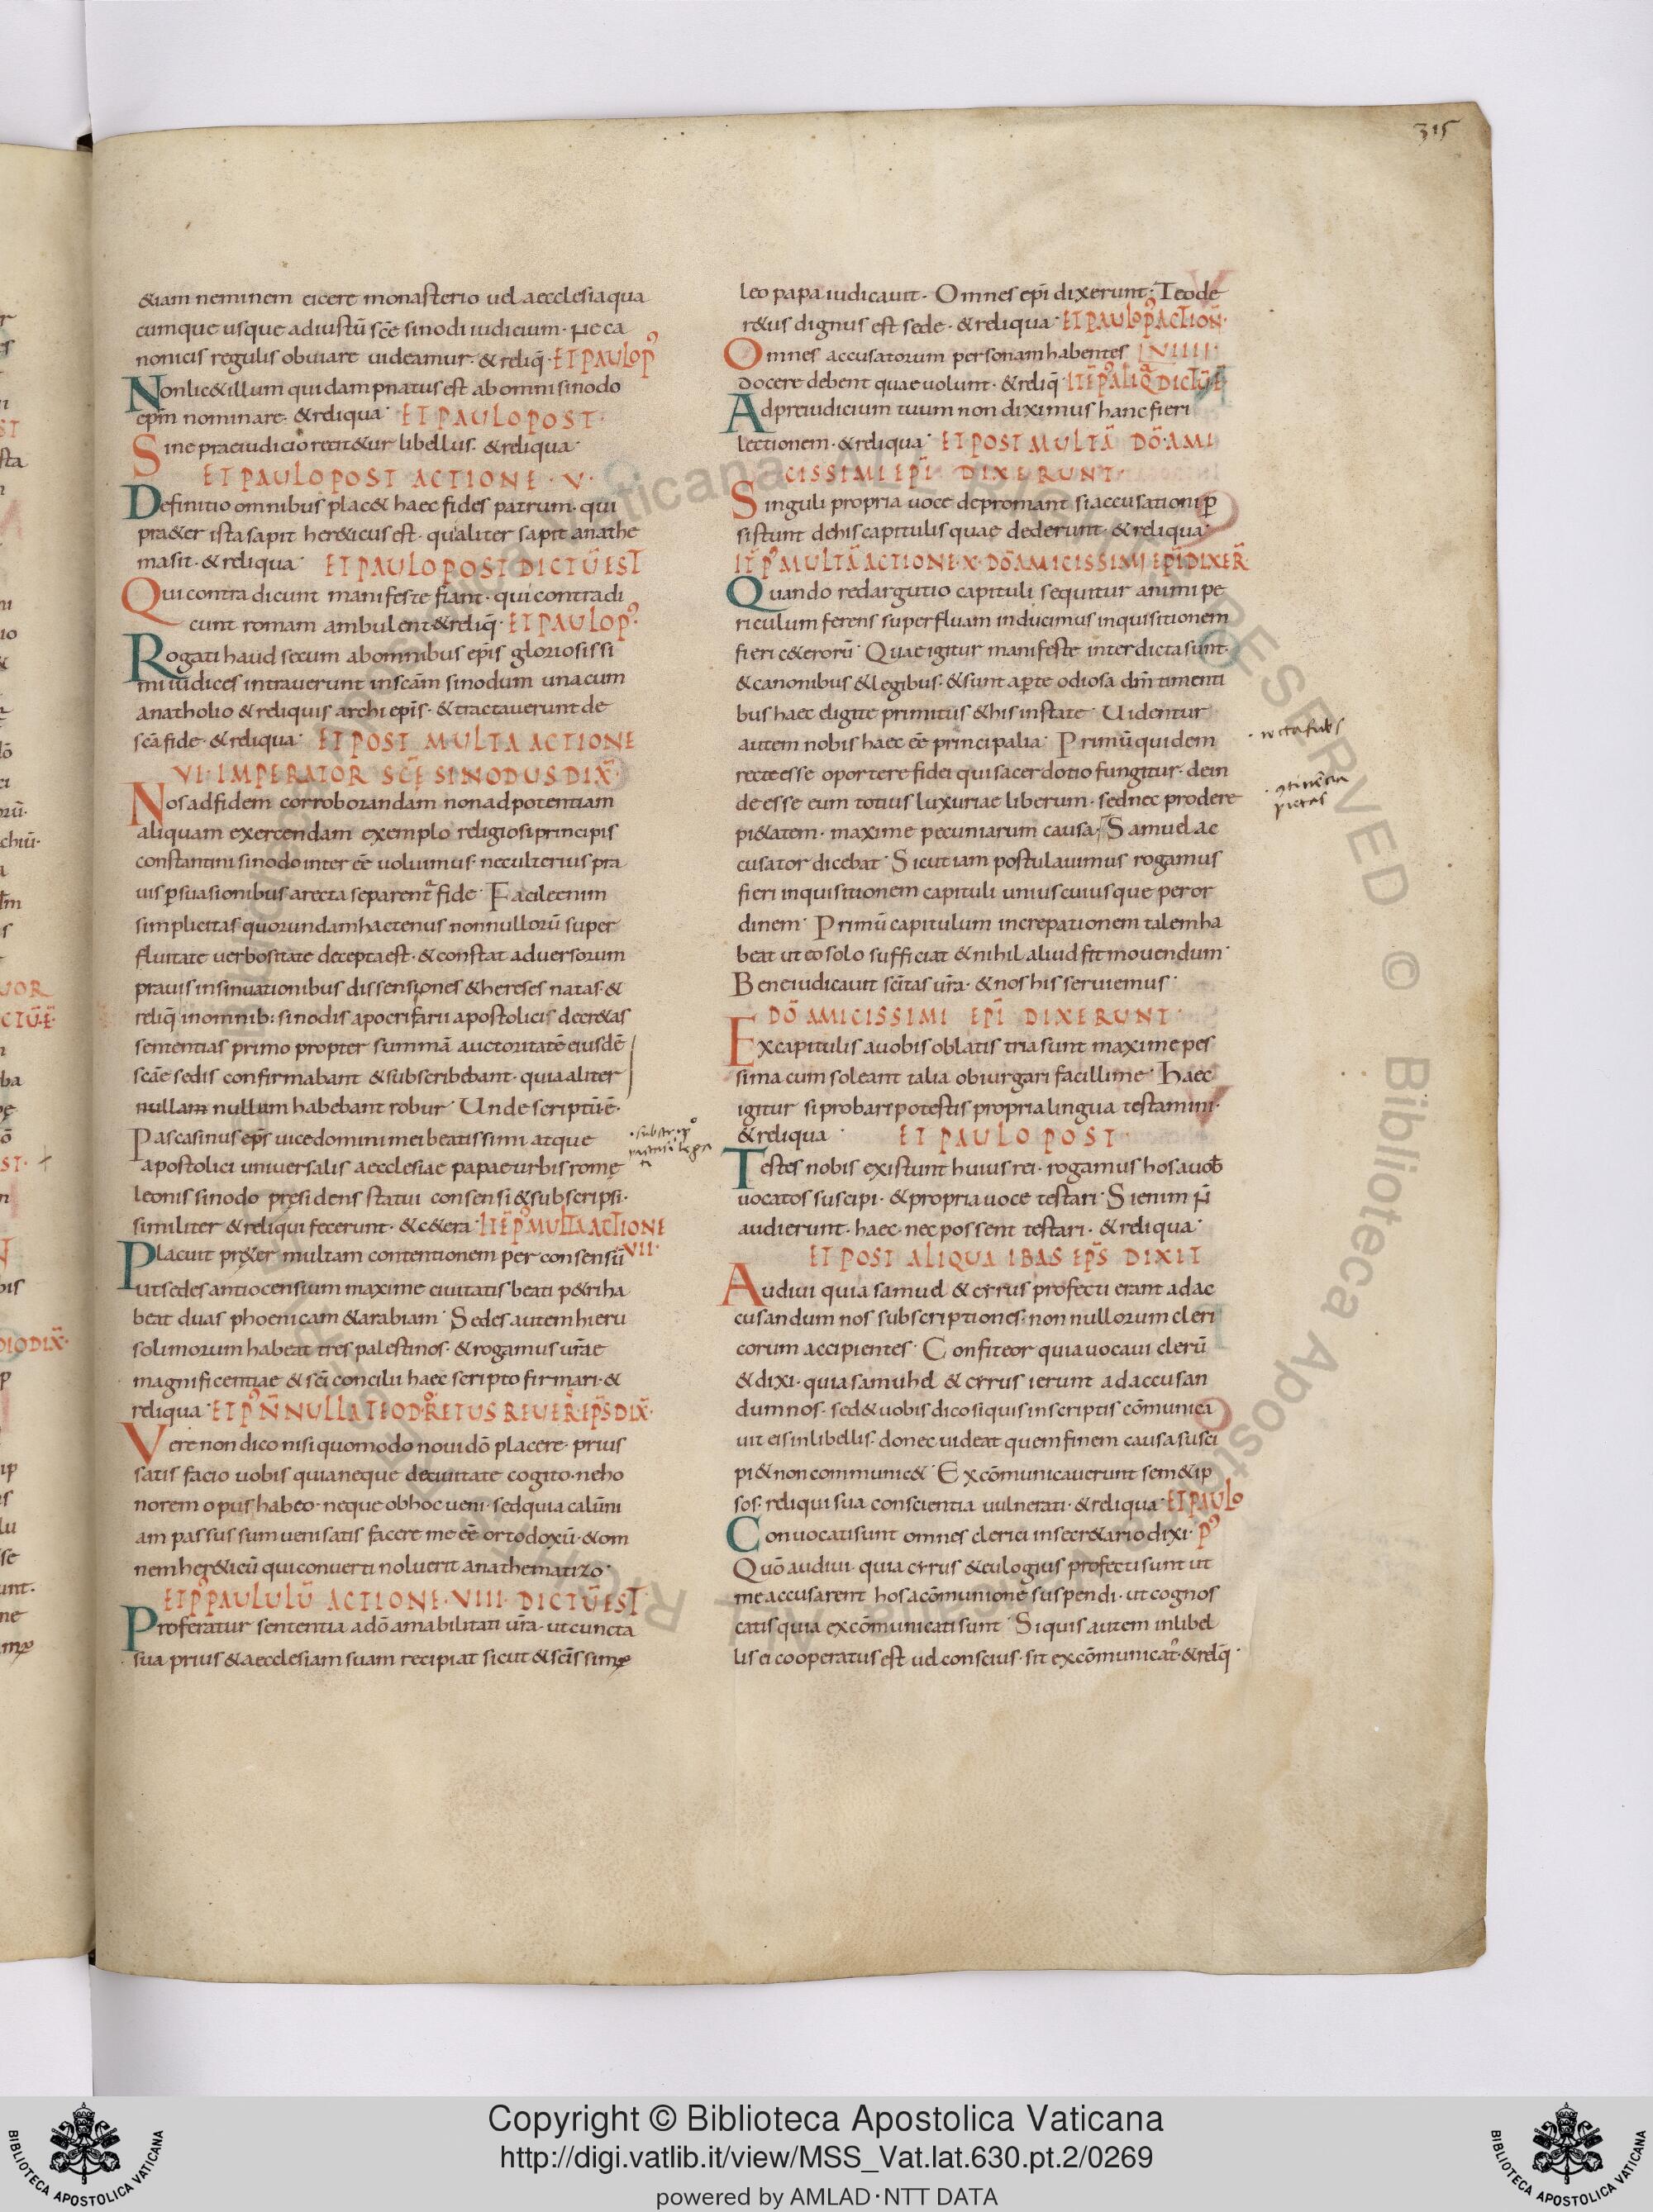 315
&iam neminem eicere monasterio uel aecclesia qua
cumque usque ad iustū scē sinodi iudicium. Ne ca
nonicis regulis obuiare uideamur. & reliq̄. ET PAULO P'
Non lic& illum qui dampnatus est ab omni sinodo
ep̄m nominare. & reliqua. ET PAULO POST.
Sine praeiudicio recit&ur libellus. & reliqua.
ET PAULO POST ACTIONE. V.
Definitio omnibus plac& haec fides patrum. qui
pra&er ista sapit her&icus est. qualiter sapit anathe
ma sit. & reliqua. ET PAULO POST DICTŪ EST
Qui contradicunt manifeste fiant. qui contradi
cunt romam ambulent & reliq̄. ET PAULO P'.
Rogati haud secum ab omnibus ep̄is gloriosissi
mi iudices intrauerunt in scām sinodum una cum
anatholio & reliquis archiep̄is. & tractauerunt de
scā fide. & reliqua. ET POST MULTA ACTIONE
VI. IMPERATOR SCĘ SINODUS DIX̄.
Nos ad fidem corroborandam non ad potentiam
aliquam exercendam exemplo religiosi principis
constantini sinodo inter eē uoluimus. nec ulterius pra
uis p̱suasionibus a recta separent' fide. Facile enim
simplicitas quorundam hactenus nonnullorū super
fluitate uerbositate decepta est. & constat aduersorum
prauis insinuationibus dissensiones & hereses natas. &
reliq̄ in omnib: sinodis apocrifarii apostolicis decr&as
sententias primo propter summā auctoritatē eiusdē
scāe sedis confirmabant & subscribebant. quia aliter
nullam nullum habebant robur. Unde scriptū ē.
Pascasinus ep̄s uice domini mei beatissimi atque
apostolici uniuersalis aecclesiae papae urbis romę
leonis sinodo pręsidens statui consensi & subscripsi.
similiter & reliqui fecerunt. & c&era. ITĒ P' MULTA ACTIONE
VII.
Placuit pręter multam contentionem per consensū
ut sedes antiocensium maxime ciuitatis beati p&ri ha
beat duas phoenicam & arabiam. Sedes autem hieru
solimorum habeat tres palestinos. & rogamus ur̄ae
magnificentiae & sci concilii haec scripto firmari. &
reliqua. ET P' N̄NULLA TEODORETUS REUER. EP̄S DIX̄.
Vere non dico nisi quomodo noui dō placere. prius
satis facio uobis quia neque de ciuitate cogito. ne ho
norem opus habeo. neque ob hoc ueni. sed quia calūni
am passus sum ueni satis facere me eē ortodoxū. & om
nem her&icū qui conuerti noluerit anathematizo.
ET P' PAULULŪ ACTIONE. VIII. DICTŪ EST.
Proferatur sententia a dō amabilitati ur̄a. ut cuncta
sua prius & aecclesiam suam recipiat sicut & scīssimę
leo papa iudicauit. Omnes ep̄i dixerunt. Teode
r&us dignus est sede. & reliqua. ET PAULO P' ACTION̄.
Omnes accusatorum personam habentes VIIII.
docere debent quae uolunt. & reliq̄. ITĒ P' ALIQ̄ DICTŪ Ē
Ad preiudicium tuum non diximus hanc fieri
lectionem. & reliqua. ET POST MULTĀ DŌ. AMI
CISSIMI EP̄I DIXERUNT.
Singuli propria uoce depromant si accusationi p̱
sistunt de his capitulis quae dederunt. & reliqua.
IT̄ P' MULTĀ ACTIONE. X. DŌ AMICISSIMI EP̄I DIXER̄.
Quando redargutio capituli sequitur animi pe
riculum ferens superfluam inducimus inquisitionem
fieri c&erorū. Quae igitur manifeste interdicta sunt.
& canonibus & legibus. & sunt ap̱te odiosa dm̄ timenti
bus haec eligite primitus & his instate. Uidentur
autem nobis haec eē principalia. Primū quidem
recte esse oportere fidei qui sacerdotio fungitur. dein
de esse eum totius luxuriae liberum. sed nec prodere
pi&atem. maxime pecuniarum causa. Samuel ac
cusator dicebat. Sicut iam postulauimus rogamus
fieri inquisitionem capituli uniuscuiusque per or
dinem. Primū capitulum increpationem talem ha
beat ut eo solo sufficiat & nihil aliud sit mouendum.
Bene iudicauit scītas ur̄a. & nos his seruiemus.
DŌ AMICISSIMI EP̄I DIXERUNT.
Ex capitulis a uobis oblatis tria sunt maxime pes
sima cum soleant talia obiurgari facillime. Haec
igitur si probari potestis propria lingua testamini.
& reliqua. ET PAULO POST.
Testes nobis existunt huius rei. rogamus hos a uob̄
uocatos suscipi. & propria uoce testari. Si enim N̄
audierunt. haec. nec possent testari. & reliqua.
ET POST ALIQUA IBAS EP̄S DIXIT
Audiui quia samuel & cyrus profecti erant ad ac
cusandum nos subscriptiones. nonnullorum cleri
corum accipientes. Confiteor quia uocaui clerū
& dixi. quia samuhel & cyrus ierunt ad accusan
dum nos. sed & uobis dico si quis in scriptis cōmunica
uit eis in libellis. donec uideat quem finem causa susci
pi& non communic&. Excōmunicauerunt sem&ip
sos. reliqui sua conscientia uulnerati. & reliqua. ET PAULO
Conuocati sunt omnes clerici in secr&ario dixi. P'
Quō audiui. quia cyrus & eulogius profecti sunt ut
me accusarent hos a cōmunionē suspendi. ut cognos
catis quia excōmunicati sunt. Si quis autem in libel
lis ei cooperatus est uel conscius. sit excōmunicat'. & reliq̄.
Copyright © Biblioteca Apostolica Vaticana
http://digi.vatlib.it/view/MSS_Vat.lat.630.pt.2/0269
powered by AMLAD·NTT DATA
BIBLIOTECA APOSTOLICA VATICANA
BIBLIOTECA APOSTOLICA VATICANA